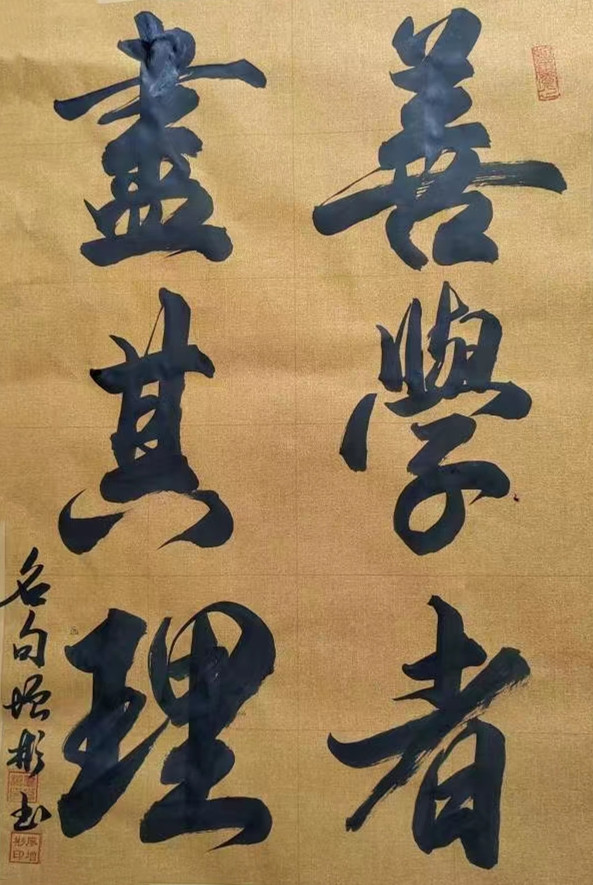 善學者
盡其理
名句增彬书